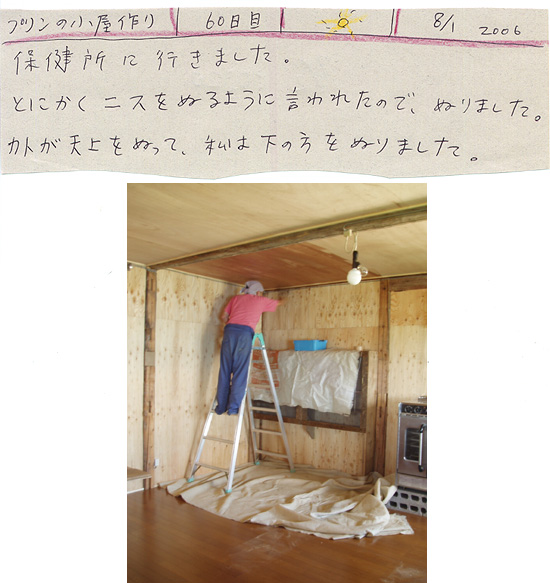 プリンの小屋作り 60日目 8/1 2006
保健所に行きました。
とにかくニスをぬるように言われたので、ぬりました。
カトが天上をぬって、私は下の方をぬりました。